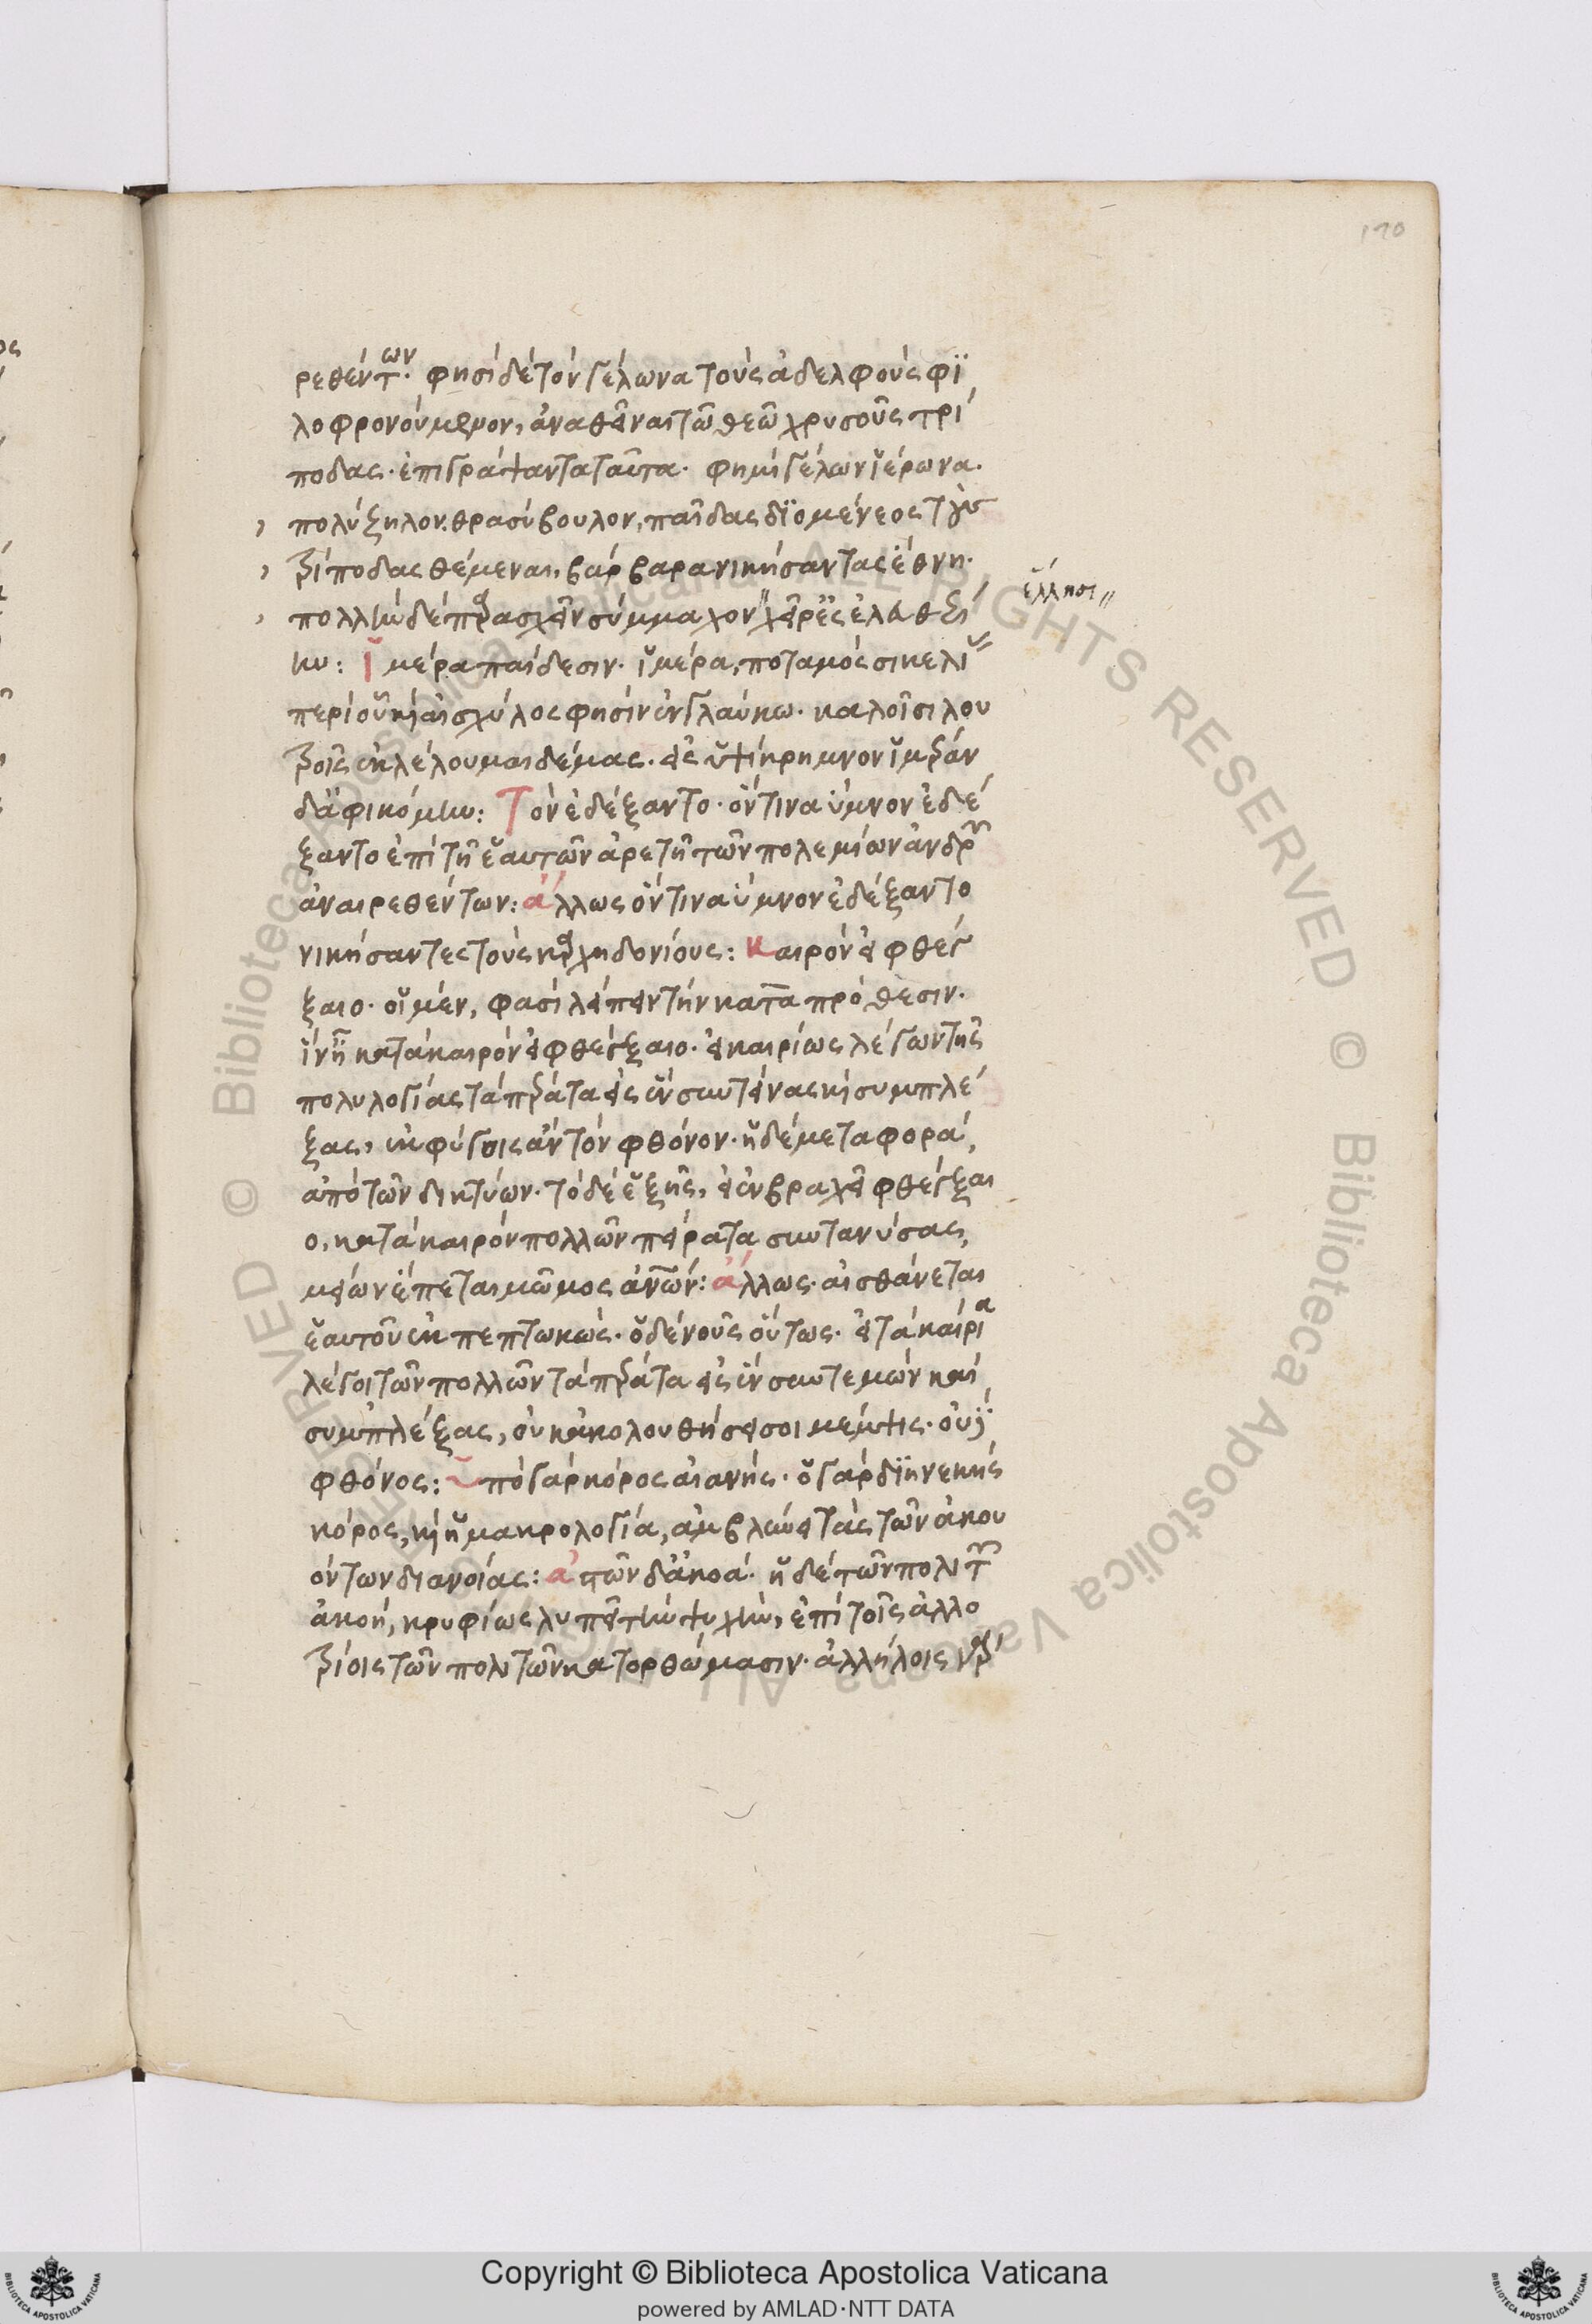 170
ρεθέντων· φησὶ δὲ τὸν Γέλωνα τοὺς ἀδελφοὺς φι
λοφρονούμενον, ἀναθεῖναι τῶ θεῶ χρυσοῦς τρί
ποδας· ἐπιγράψαντα ταῦτα· φημὶ Γέλων ἱέρωνα·
πολύζηλον. θρασύβουλον, παῖδας διομένεος τοὺς
τρίποδας θέμεναι, βάρβαρα νικήσαντας ἔθνη·
ἕλλησι
πολλὴν δὲ παρασχεῖν σύμμαχον χεῖρ ἐς ἐλευθερί
ην: Ἱμέρα παίδεσιν· ἱμέρα, ποταμὸς σικελι
περὶ οὗ καὶ αἰσχύλος φησὶν ἐν γλαύκω· καλοῖσι λου
τροῖς ἐκλέλουμαι δέμας· εἰς ὑψίκρημνον ἱμέραν
δ' ἀφικόμην: Τὸν ἐδέξαντο· ὅντινα ὕμνον ἐδέ
ξαντο ἐπὶ τῆ ἑαυτῶν ἀρετῆ τῶν πολεμίων ἀνδρῶν
ἀναιρεθέντων: ἄλλως ὅντινα ὕμνον ἐδέξαντο
νικήσαντες τοὺς καρχηδονίους: Καιρὸν εἰ φθέγ
ξαιο· οἱ μὲν, φασὶ λείπειν τὴν κατὰ πρόθεσιν·
ἵν' ἦ κατὰ καιρὸν εἰ φθέγξαιο· εἰ καιρίως λέγων τῆς
πολυλογίας τὰ πέρατα εἰς ἓν συντείνας καὶ συμπλέ
ξας, ἐκφύγοις ἂν τὸν φθόνον· ἡ δὲ μεταφορὰ,
ἀπὸ τῶν δικτύων· τὸ δὲ ἑξῆς, εἰ ἐν βραχεῖ φθέγξαι
ο, κατὰ καιρὸν πολλῶν πείρατα συντανύσας,
μείων ἕπεται μῶμος ἀνθρώπων: ἄλλως· αἰσθάνεται
ἑαυτοῦ ἐκπεπτωκώς· ὁ δὲ νοῦς οὕτως· εἰ τὰ καίρια
λέγοι τῶν πολλῶν τὰ πέρατα εἰς ἓν συντεμὼν καὶ
συμπλέξας, οὐκ ἀκολουθήσει σοι μέμψις· οὐδὲ
φθόνος: Ὑπὸ γὰρ κόρος αἰανής· ὁ γὰρ διηνεκὴς
κόρος, καὶ ἡ μακρολογία, ἀμβλύνει τὰς τῶν ἀκου
όντων διανοίας: ἀστῶν δ' ἀκοά· ἡ δὲ τῶν πολιτῶν
ἀκοὴ, κρυφίως λυπεῖ τὴν ψυχὴν, ἐπὶ τοῖς ἀλλο
τρίοις τῶν πολιτῶν κατορθώμασιν· ἀλλήλοις γὰρ